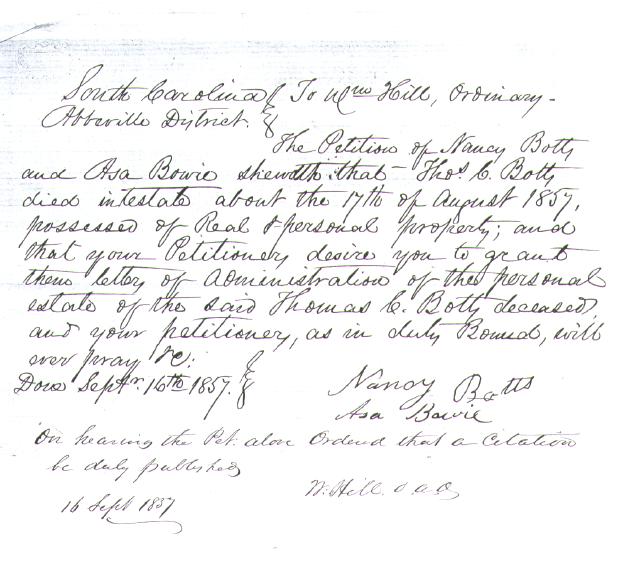 South Carolina } To Wm Hill, Ordinary-
Abbeville District. }
The Petition of Nancy Botts
and Asa Bowie sheweth that Thos. C. Botts
died intestate about the 17th of August 1857,
possessed of Real & personal property; and
that your Petitioners desire you to grant
them letters of Administration of the personal
estate of the said Thomas C. Botts deceased,
and your petitioners, as in duty Bound, will
ever pray &c: }
Done Septr. 16th 1857. }
Nancy Botts
Asa Bowie
On hearing the Pet. above Ordered that a Citation
be duly published
16 Sept 1857
W. Hill. O.A.D.